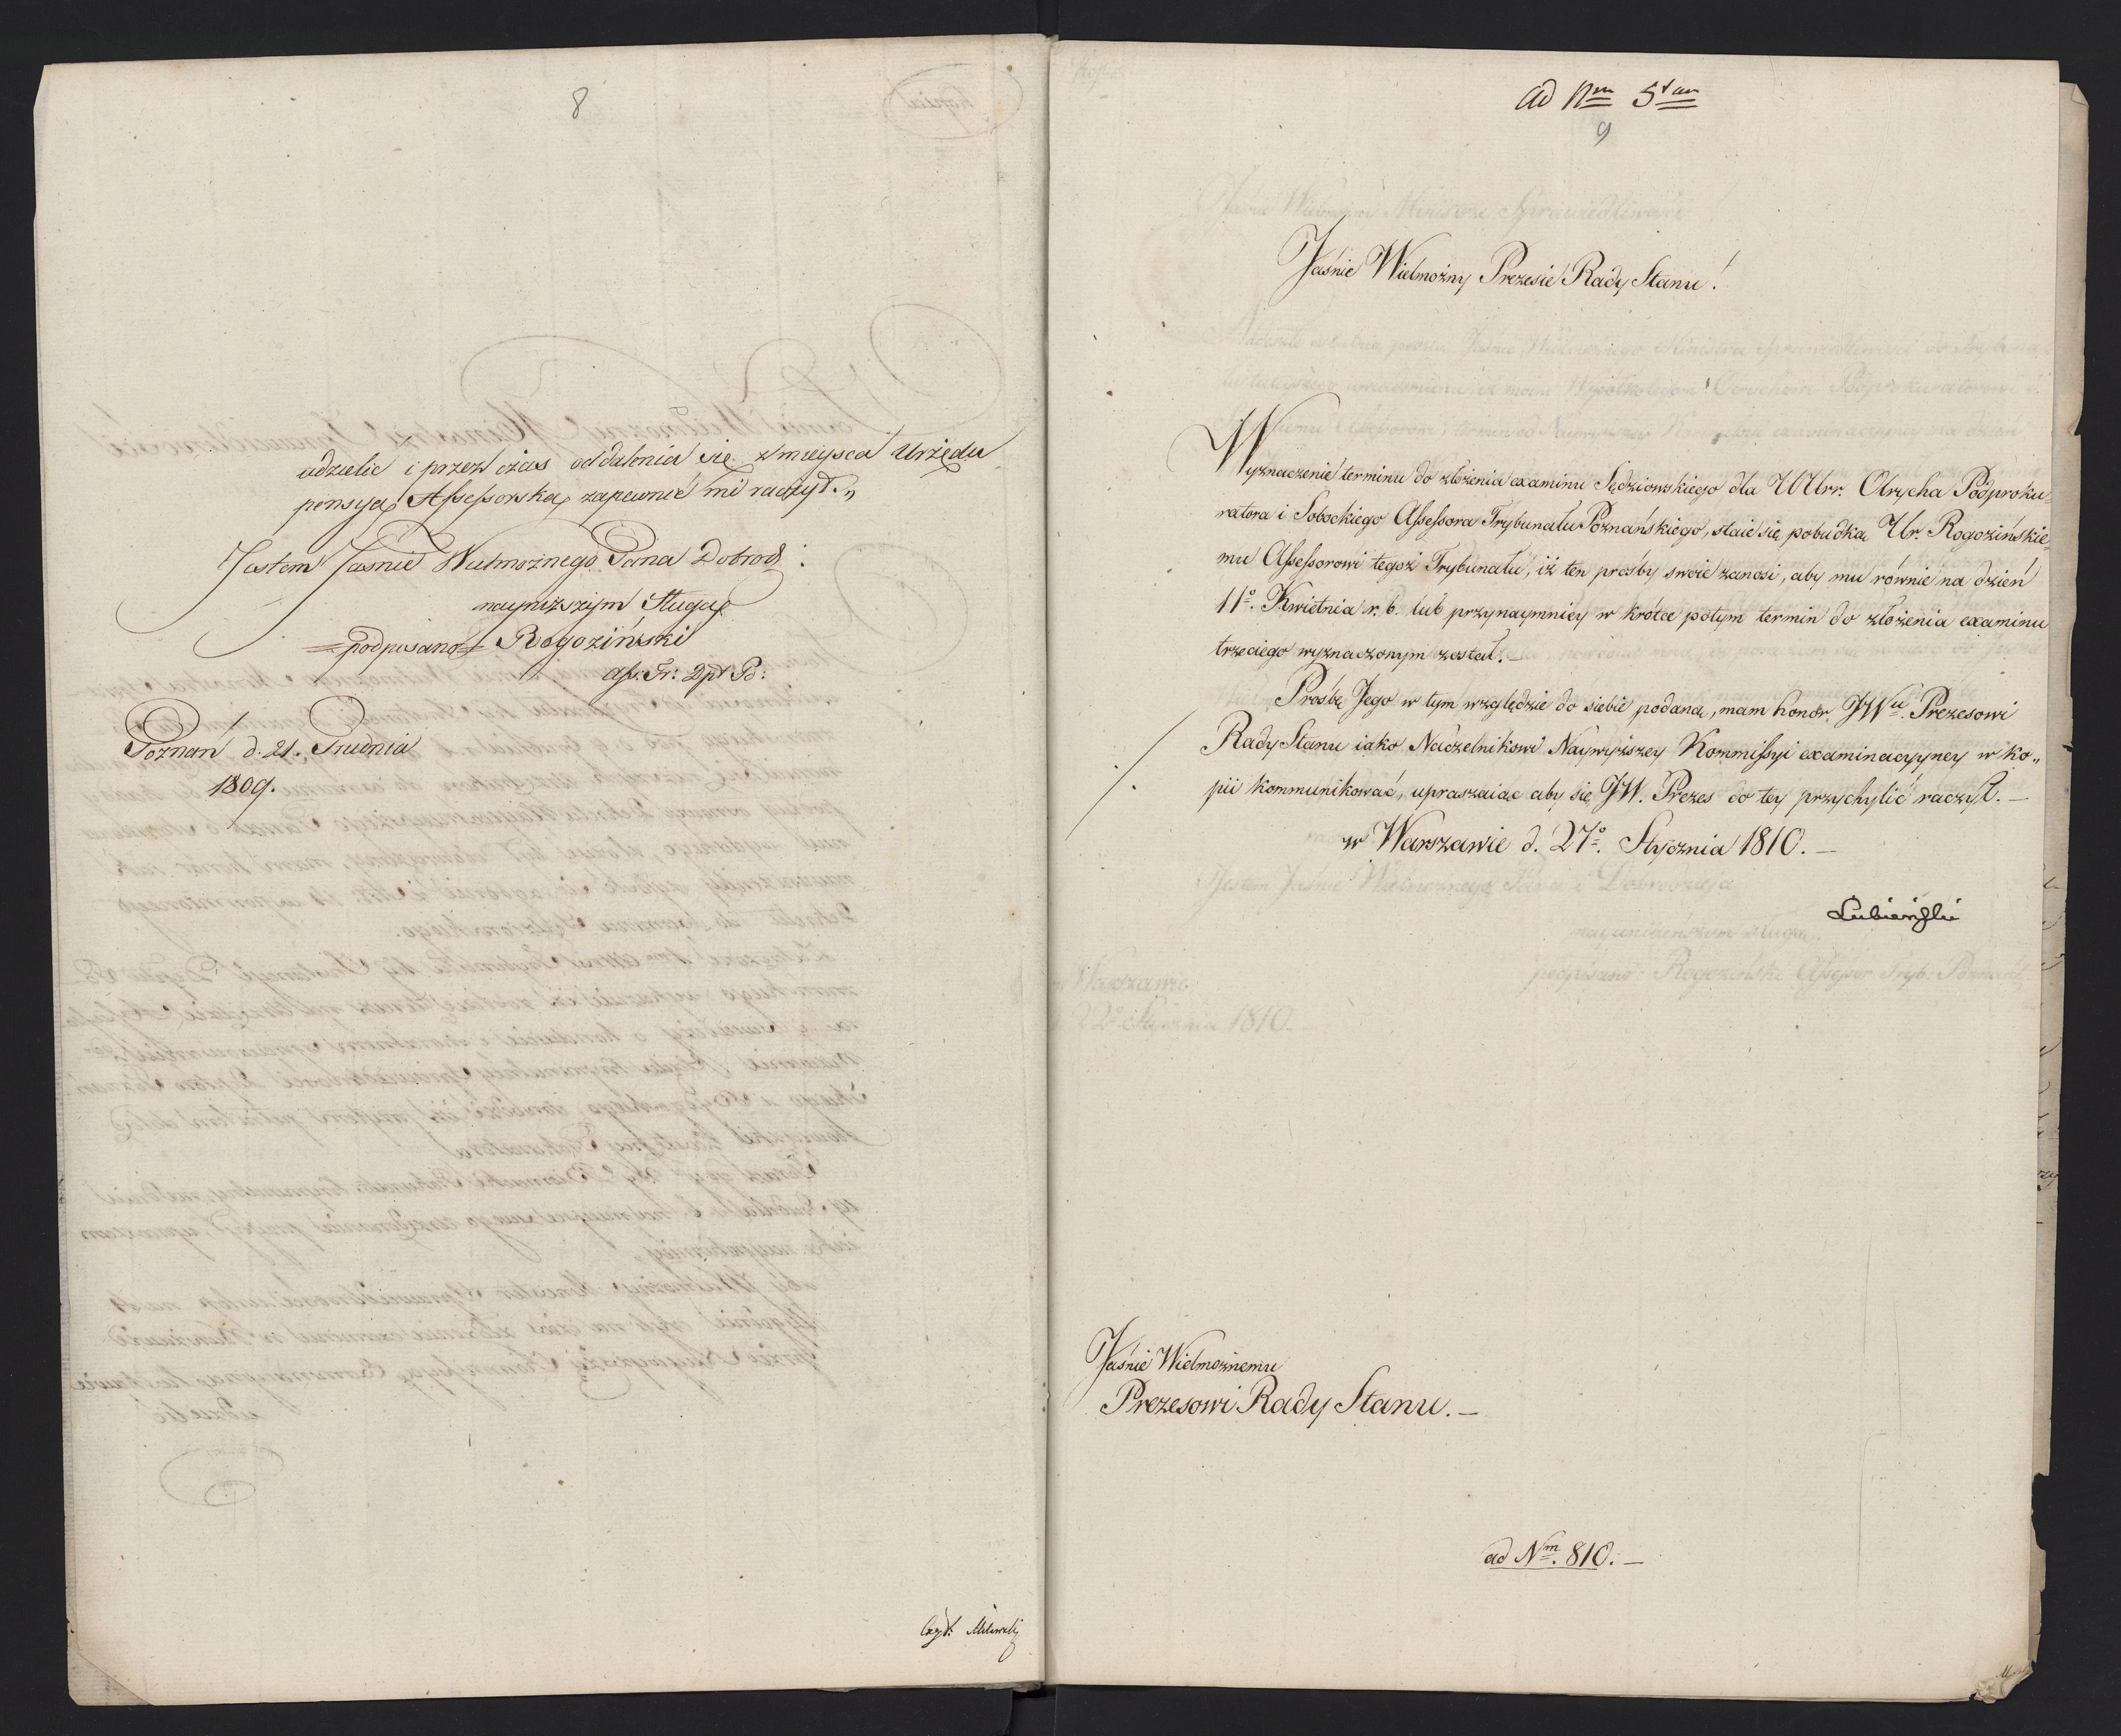 8
udzielic i przez czas oddalenia się z mieysca Urzędu
pensyą Assessorską zapewnić mi raczył.„
Jestem Jasnie Wielmożnego Pana Dobrodz:
nayniższym Sługą
=podpisano= Rogoziński
Ass: Tr: Dpt Po:
Poznań d. 21. Grudnia
1809.
Czyt: Milewski
ad Nm 5tum
9
Jaśnie Wielmożny Prezesie Rady Stanu!
Wyznaczenie terminu do złożenia examinu Sędziowskiego dla UUrr. Olrycha Podproku=
ratora i Sobockiego Assessora Trybunału Poznańskiego, staie się pobudką Ur. Rogozińskie=
mu Assessorowi tegoż Trybunału, iż ten prośby swoie zanosi, aby mu równie na dzień
11o. Kwietnia r. b. lub przynaymniey w krótce potym termin do złożenia examinu
trzeciego wyznaczonym został.—
Prośbę Jego w tym względzie do siebie podaną, mam honor JWu. Prezesowi
Rady Stanu iako Naczelnikowi Naywyższey Kommissyi examinacyyney w ko„
pii kommunikować, upraszaiąc aby się JW. Prezes do tey przychylić raczył.—
w Warszawie d. 27o. Stycznia 1810.—
Lubieński
Jaśnie Wielmożnemu
Prezesowi Rady Stanu.—
ad Nm. 810.—